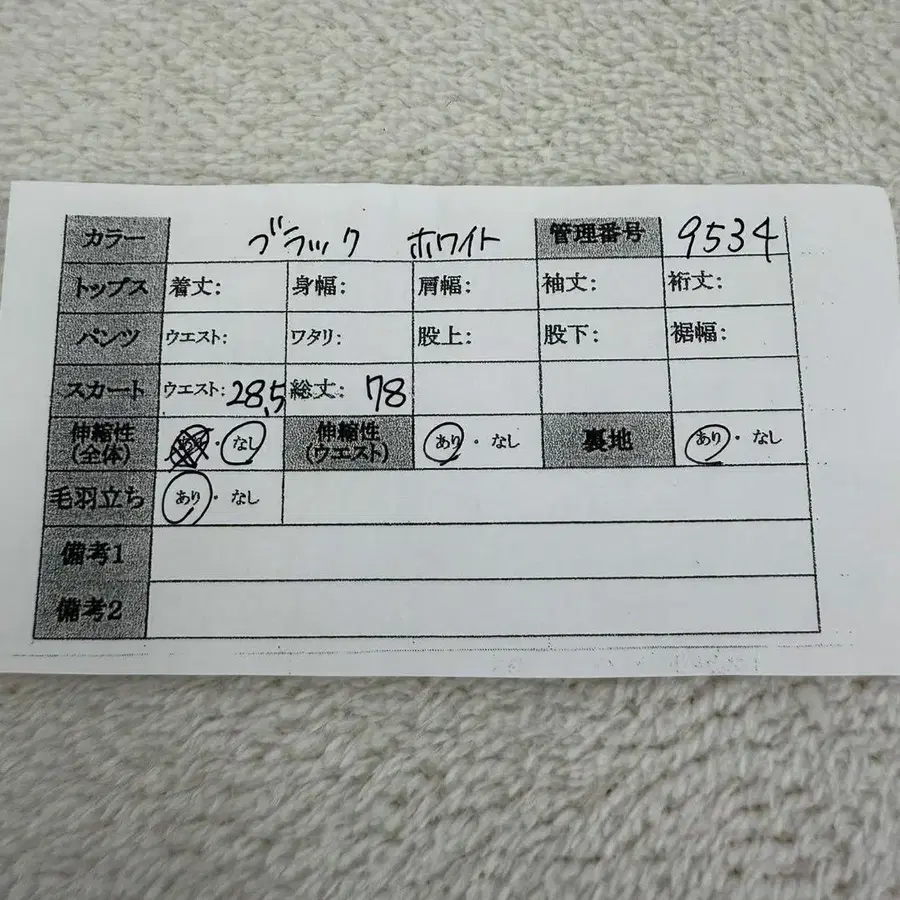 カラー ブラック ホワイト 管理番号 9534
トップス 着丈: 身幅: 肩幅: 袖丈: 裄丈:
パンツ ウエスト: ワタリ: 股上: 股下: 裾幅:
スカート ウエスト: 28.5 総丈: 78
伸縮性(全体) あり・なし 伸縮性(ウエスト) あり・なし 裏地 あり・なし
毛羽立ち あり・なし
備考1
備考2